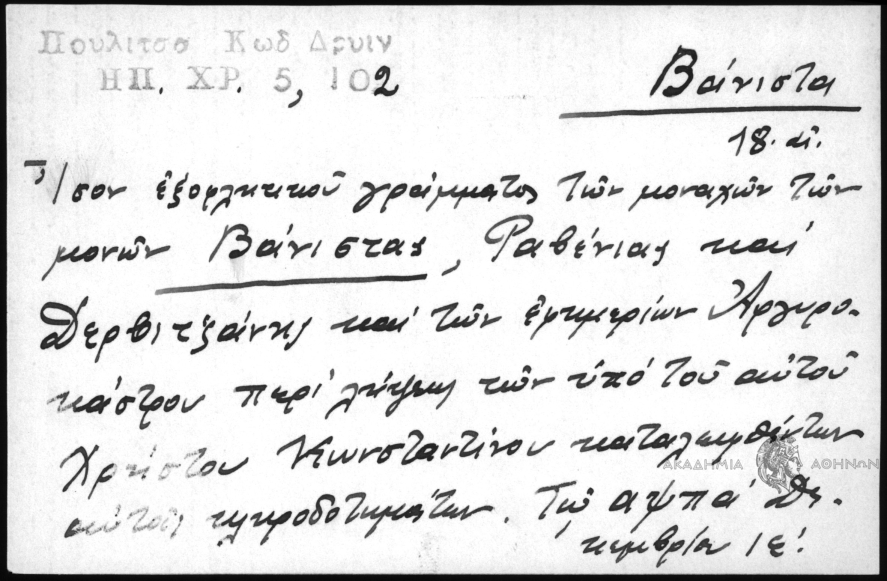 Πουλιτσο Κωδ Δρυιν
ΗΠ. ΧΡ. 5, 102
Βάνιστα
18. αἰ.
Ἴσον ἐξοφλητικοῦ γράμματος τῶν μοναχῶν τῶν
μονῶν Βάνιστας, Ραβένιας καί
Δερβιτζάνης καί τῶν ἐφημερίων Ἀργυρο-
κάστρου περί λήψεως τῶν ὑπό τοῦ αὐτοῦ
Χρήστου Κωνσταντίνου καταλειφθέντων
αὐτοῖς κληροδοτημάτων. Τῷ αψπά Δε-
κεμβρίῳ ιε!
ΑΚΑΔΗΜΙΑ ΑΘΗΝΩΝ